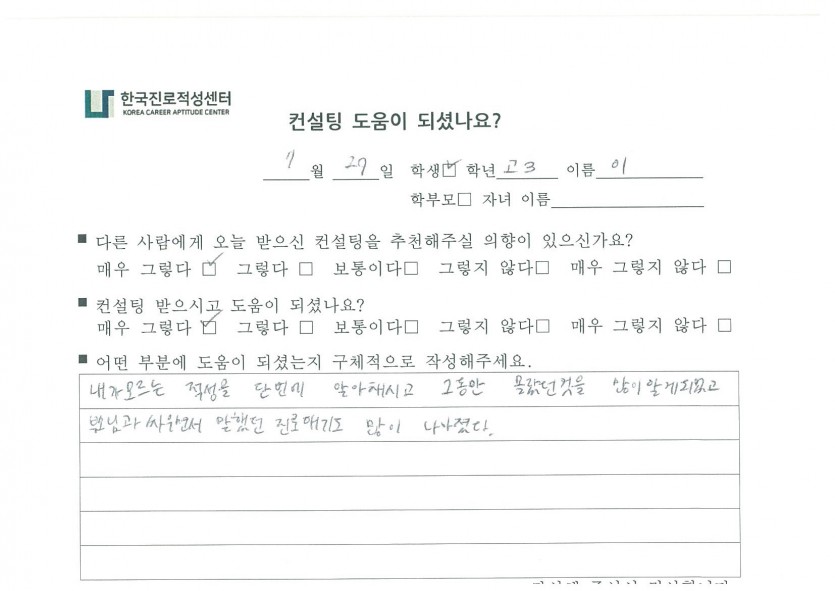 한국진로적성센터
KOREA CAREER APTITUDE CENTER
컨설팅 도움이 되셨나요?
7월 27일 학생☑ 학년 고3 이름 이
학부모□ 자녀 이름
■ 다른 사람에게 오늘 받으신 컨설팅을 추천해주실 의향이 있으신가요?
매우 그렇다 ☑ 그렇다 □ 보통이다□ 그렇지 않다□ 매우 그렇지 않다 □
■ 컨설팅 받으시고 도움이 되셨나요?
매우 그렇다 ☑ 그렇다 □ 보통이다□ 그렇지 않다□ 매우 그렇지 않다 □
■ 어떤 부분에 도움이 되셨는지 구체적으로 작성해주세요.
내가모르는 적성을 단번에 알아채시고 그동안 몰랐던것을 많이알게되었고
부모님과 싸우면서 말했던 진로얘기도 많이 나아졌다.